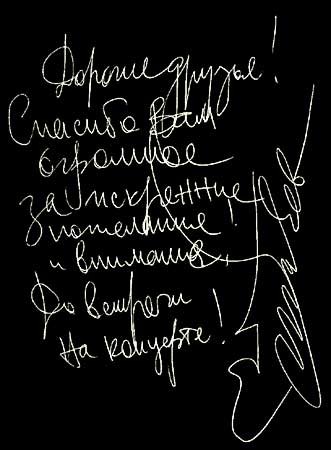 Дорогие друзья!
Спасибо Вам
огромное
за искренние
пожелания!
и внимание,
До встречи
на концерте!